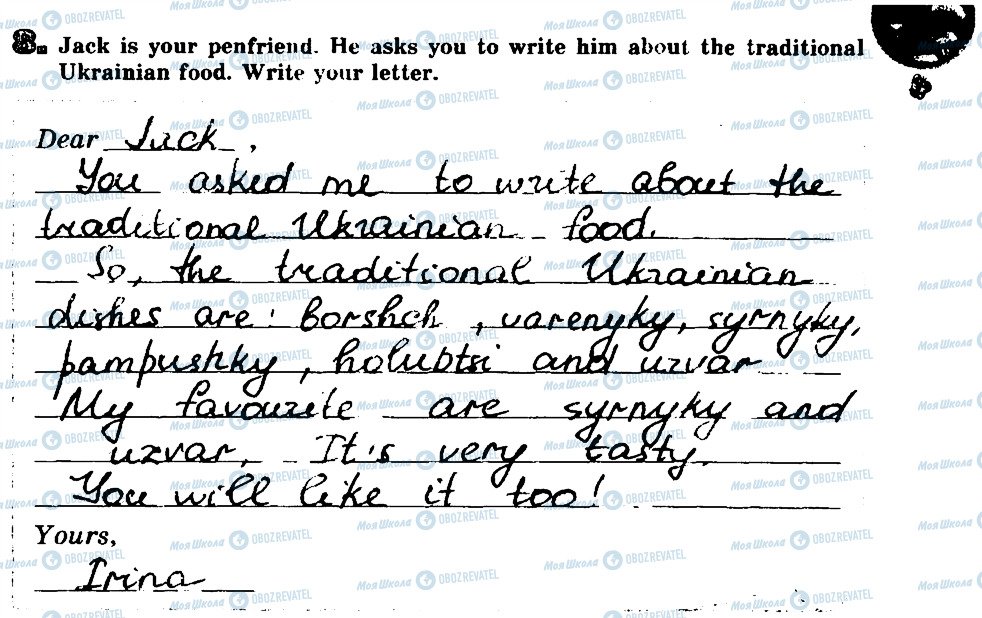 8. Jack is your penfriend. He asks you to write him about the traditional
Ukrainian food. Write your letter.
Dear Jack,
You asked me to write about the
traditional Ukrainian food.
So, the traditional Ukrainian
dishes are: borshch, varenyky, syrnyky,
pampushky, holubtsi and uzvar
My favourite are syrnyky and
uzvar. It's very tasty.
You will like it too!
Yours,
Irina